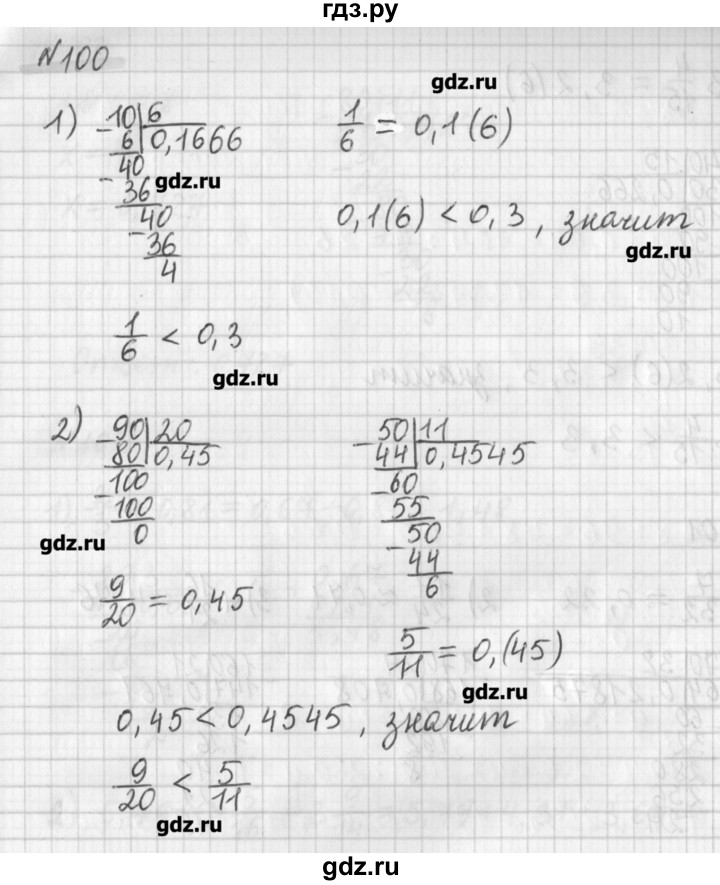 гдз.ру
N100
gdz.ru
1) 10|6
- 6 0,1666
40
- 36
40
- 36
4
gdz.ru
1/6 = 0,1(6)
0,1(6) < 0,3, значит
gdz.ru
1/6 < 0,3
gdz.ru
2) 90|20
- 80 0,45
100
- 100
0
gdz.ru
50|11
- 44 0,4545
60
- 55
50
- 44
6
9/20 = 0,45
5/11 = 0,(45)
gdz.ru
0,45 < 0,4545, значит
9/20 < 5/11
gdz.ru
gdz.ru